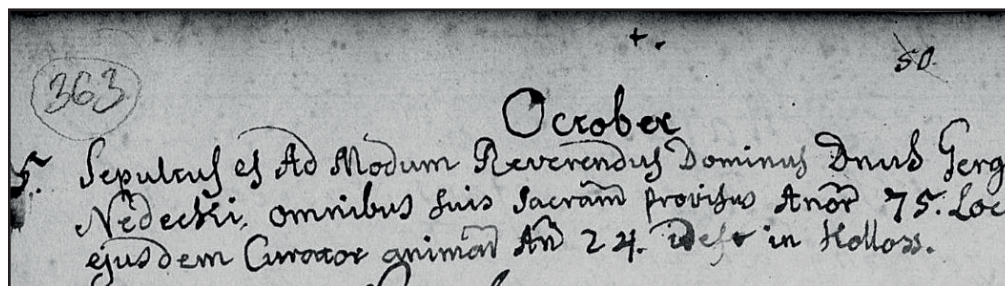 +.
50
363
October
5. Sepultus es Ad Modum Reverendus Dominus Dnus Gerg
Nedecki, omnibus suis Sacram provisus Anor 75. Loc
ejusdem Curator animar An 24. in Holloss.